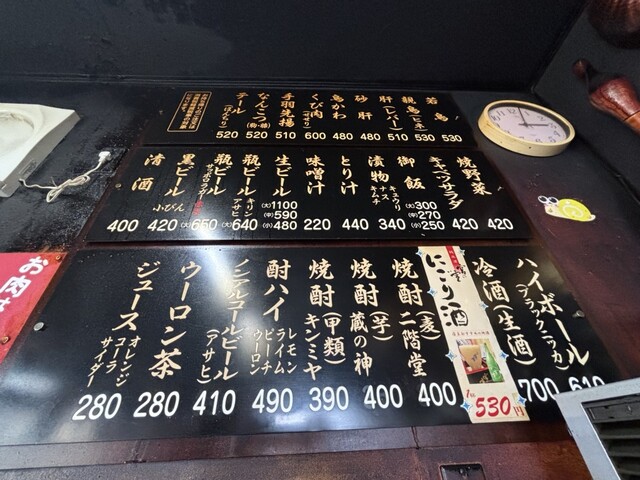 若鳥 530
親鳥(ヒネ) 530
肝(レバー) 510
砂肝 480
鳥かわ 480
くび肉(せせり) 600
手羽先揚 510
なんこつ(胸・膝) 520
テール(ぼんちり) 520
焼野菜 420
キャベツサラダ 420
御飯 (大)300 (中)270 (小)250
漬物 キュウリ ナス キムチ 340
とり汁 440
味噌汁 220
生ビール (大)1100 (中)590 (小)480
瓶ビール キリン アサヒ (大)640
瓶ビール サッポロラガー (大)650
黒ビール 小びん 420
清酒 400
ハイボール(ブラックニッカ) 610
冷酒(生酒) 700
にごり酒
1杯 530円
焼酎(麦) 二階堂 400
焼酎(芋) 蔵の神 400
焼酎(甲類) キンミヤ 390
酎ハイ レモン ライム ピーチ ウーロン 490
ノンアルコールビール(アサヒ) 410
ウーロン茶 280
ジュース オレンジ コーラ サイダー 280
お肉は